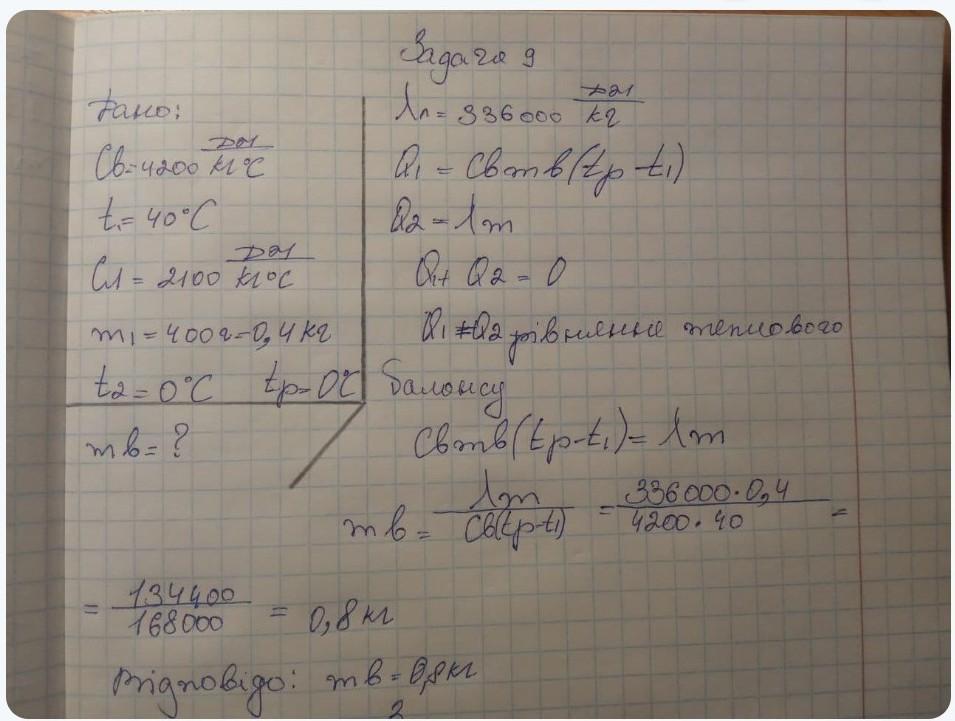 Задача 9
Дано:
Cв=4200 Дж/кг°C
t₁=40°C
Cл=2100 Дж/кг°C
m₁=400г=0,4кг
t₂=0°C tр=0°C
mв=?
λл=336000 Дж/кг
Q₁=Cвmв(tр-t₁)
Q₂=λm
Q₁+Q₂=0
Q₁=Q₂ рівняння теплового
балансу
Cвmв(tр-t₁)=λm
mв=λm/Cв(tр-t₁)=336000·0,4/4200·40=
=134400/168000=0,8кг
Відповідь: mв=0,8кг